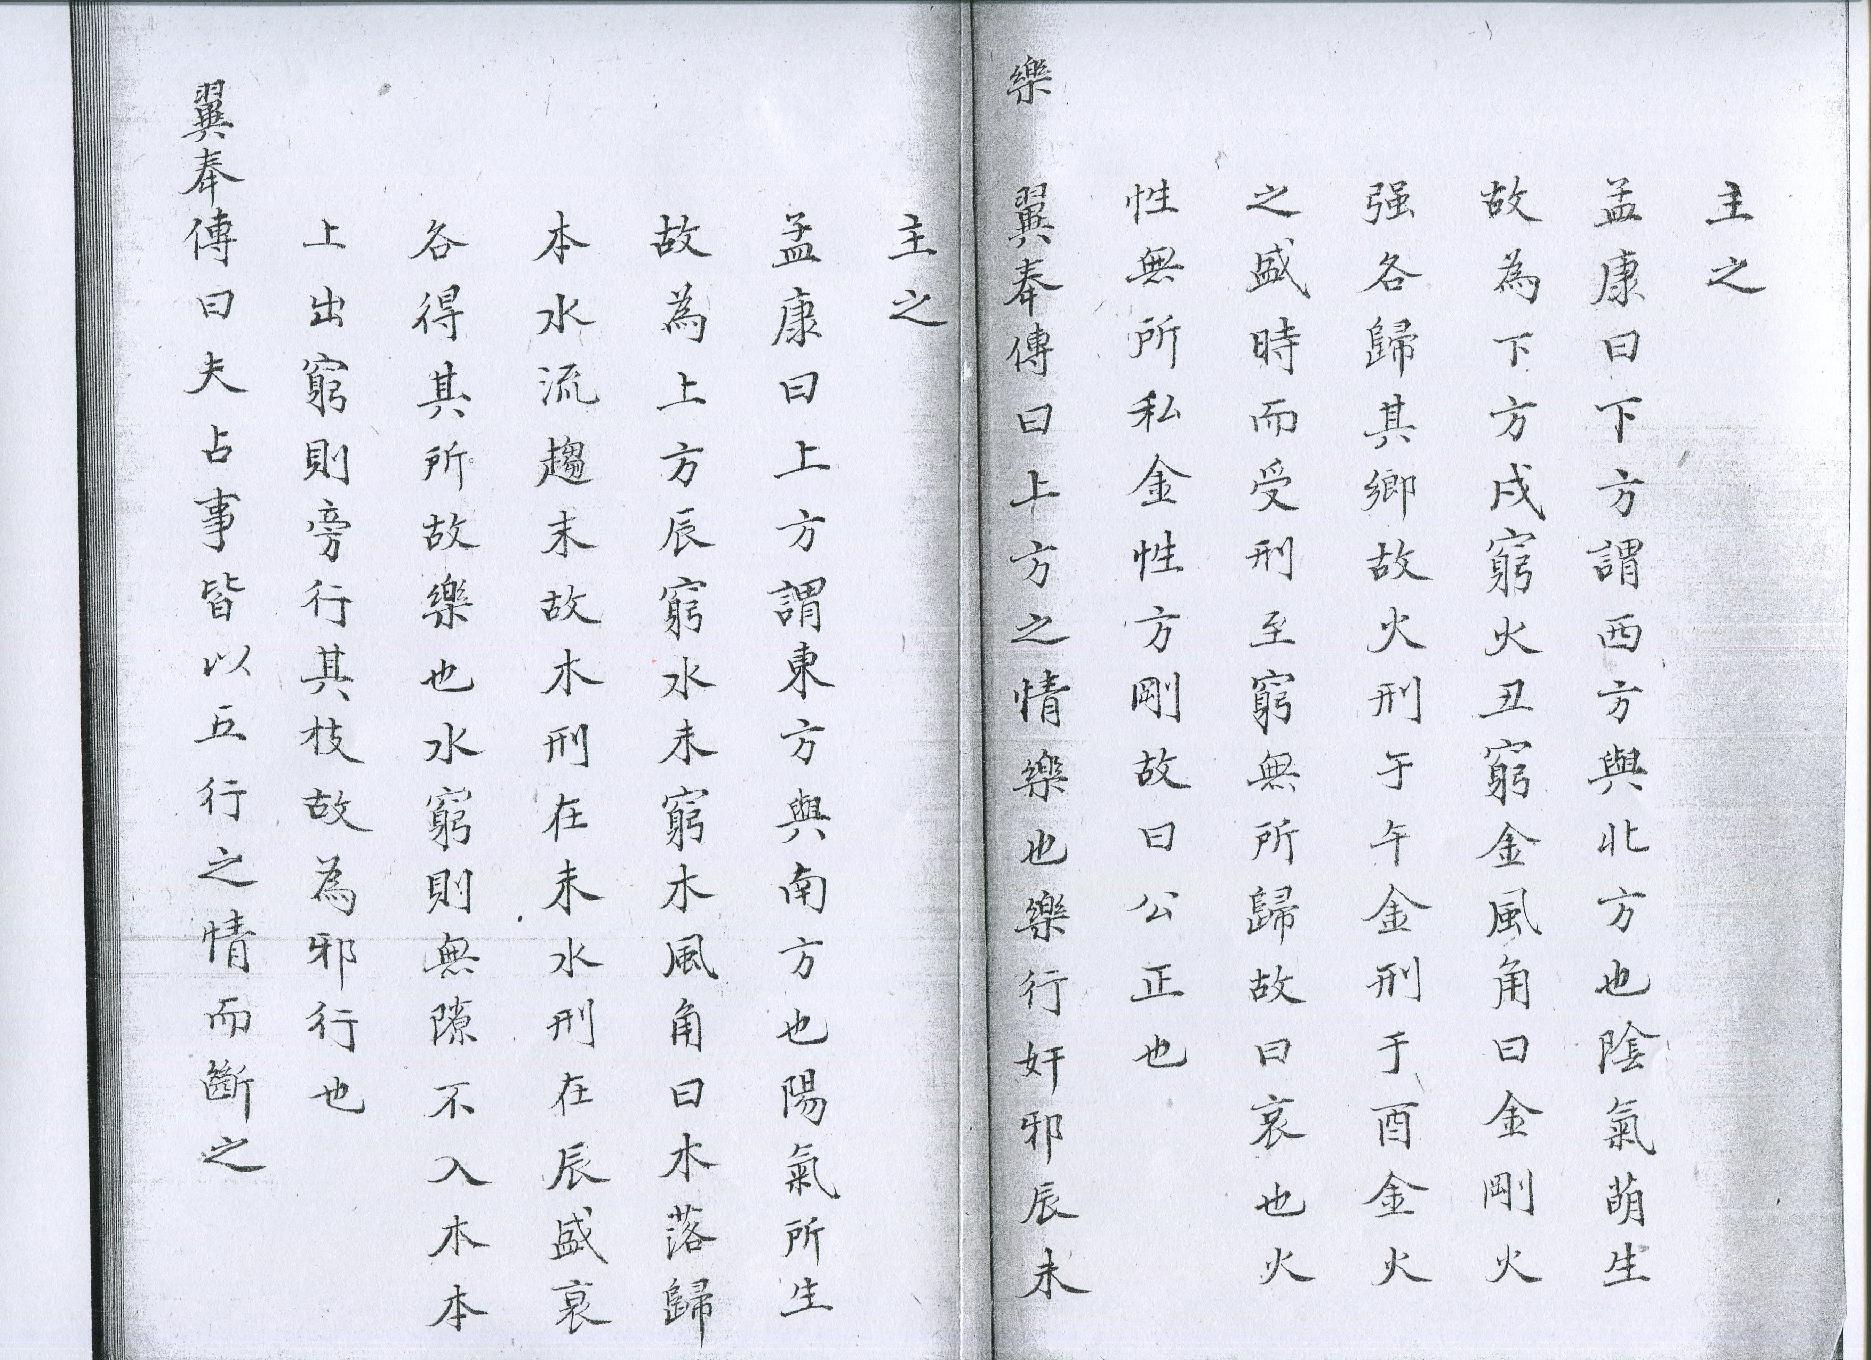 主之
孟康曰下方謂西方與北方也陰氣萌生
故為下方戌窮火丑窮金風角曰金剛火
强各歸其鄉故火刑于午金刑于酉金火
之盛時而受刑至窮無所歸故曰哀也火
性無所私金性方剛故曰公正也
樂 翼奉傳曰上方之情樂也樂行奸邪辰未
主之
孟康曰上方謂東方與南方也陽氣所生
故為上方辰窮水未窮木風角曰木落歸
本水流趨末故木刑在未水刑在辰盛哀
各得其所故樂也水窮則無隙不入木本
上出窮則旁行其枝故為邪行也
翼奉傳曰夫占事皆以五行之情而斷之